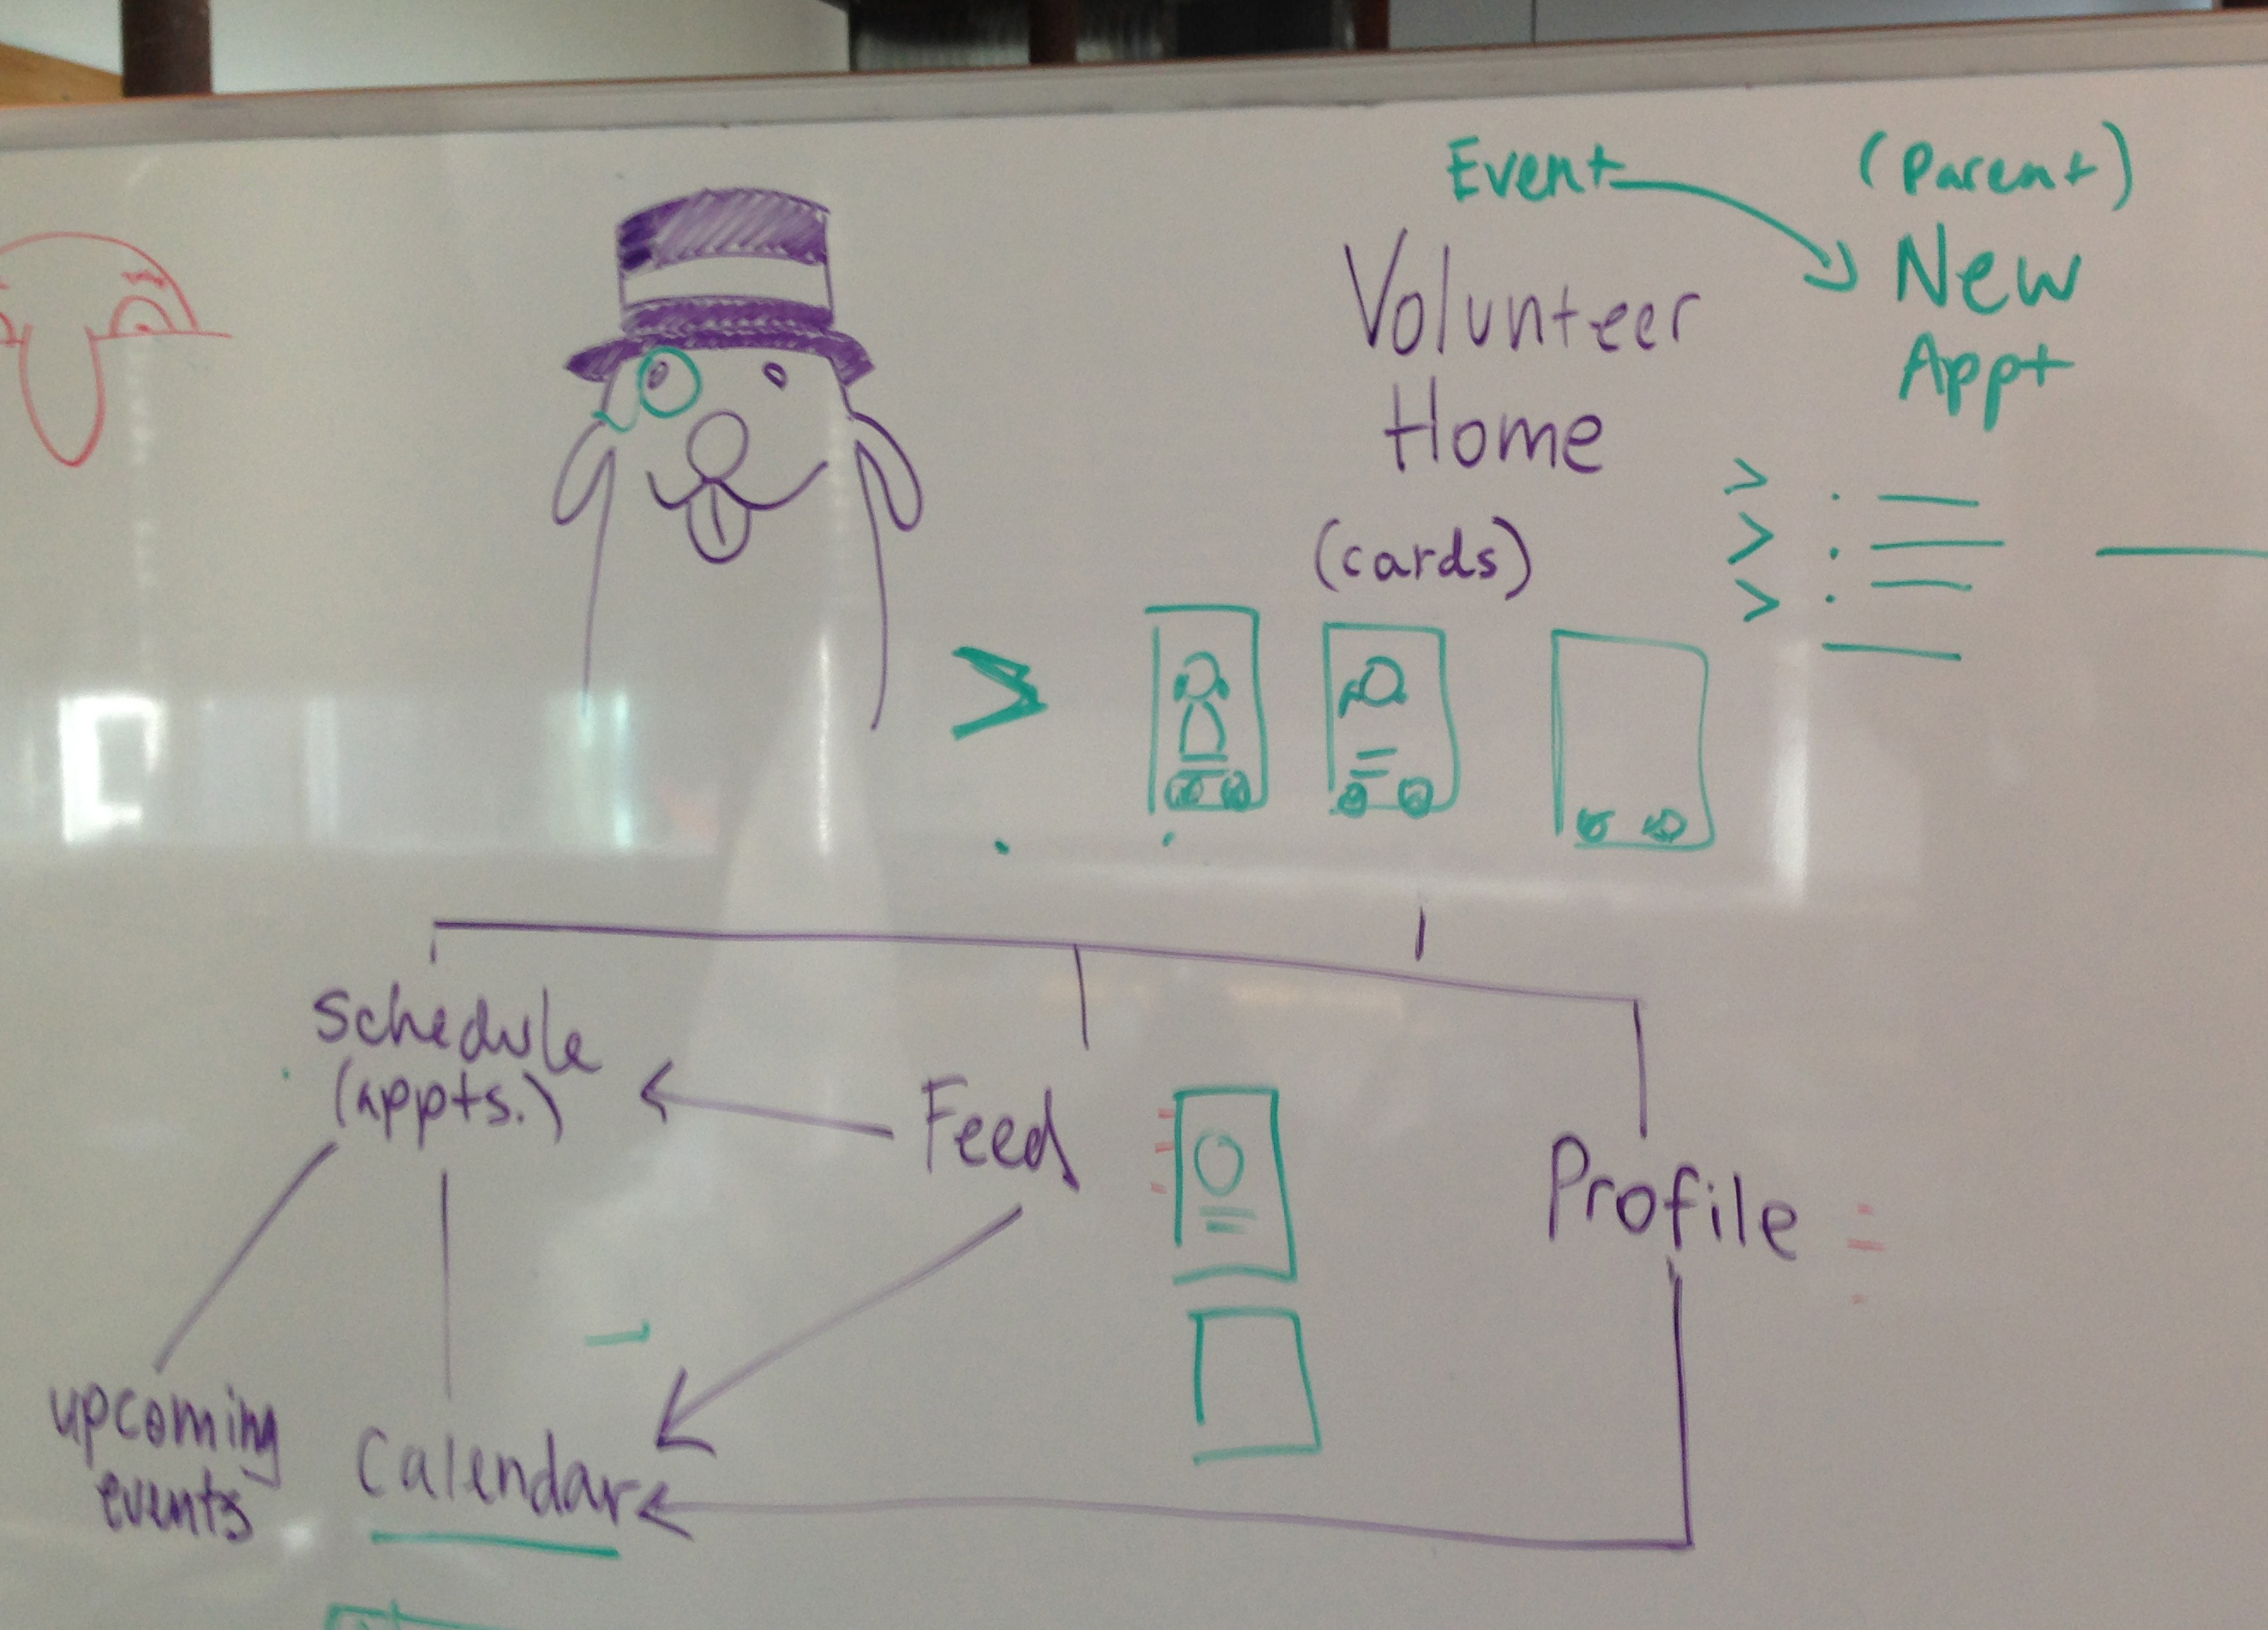 Event
(Parent)
New
Appt
Volunteer
Home
(cards)
Schedule
(appts.)
Feed
Profile
upcoming
events
Calendar